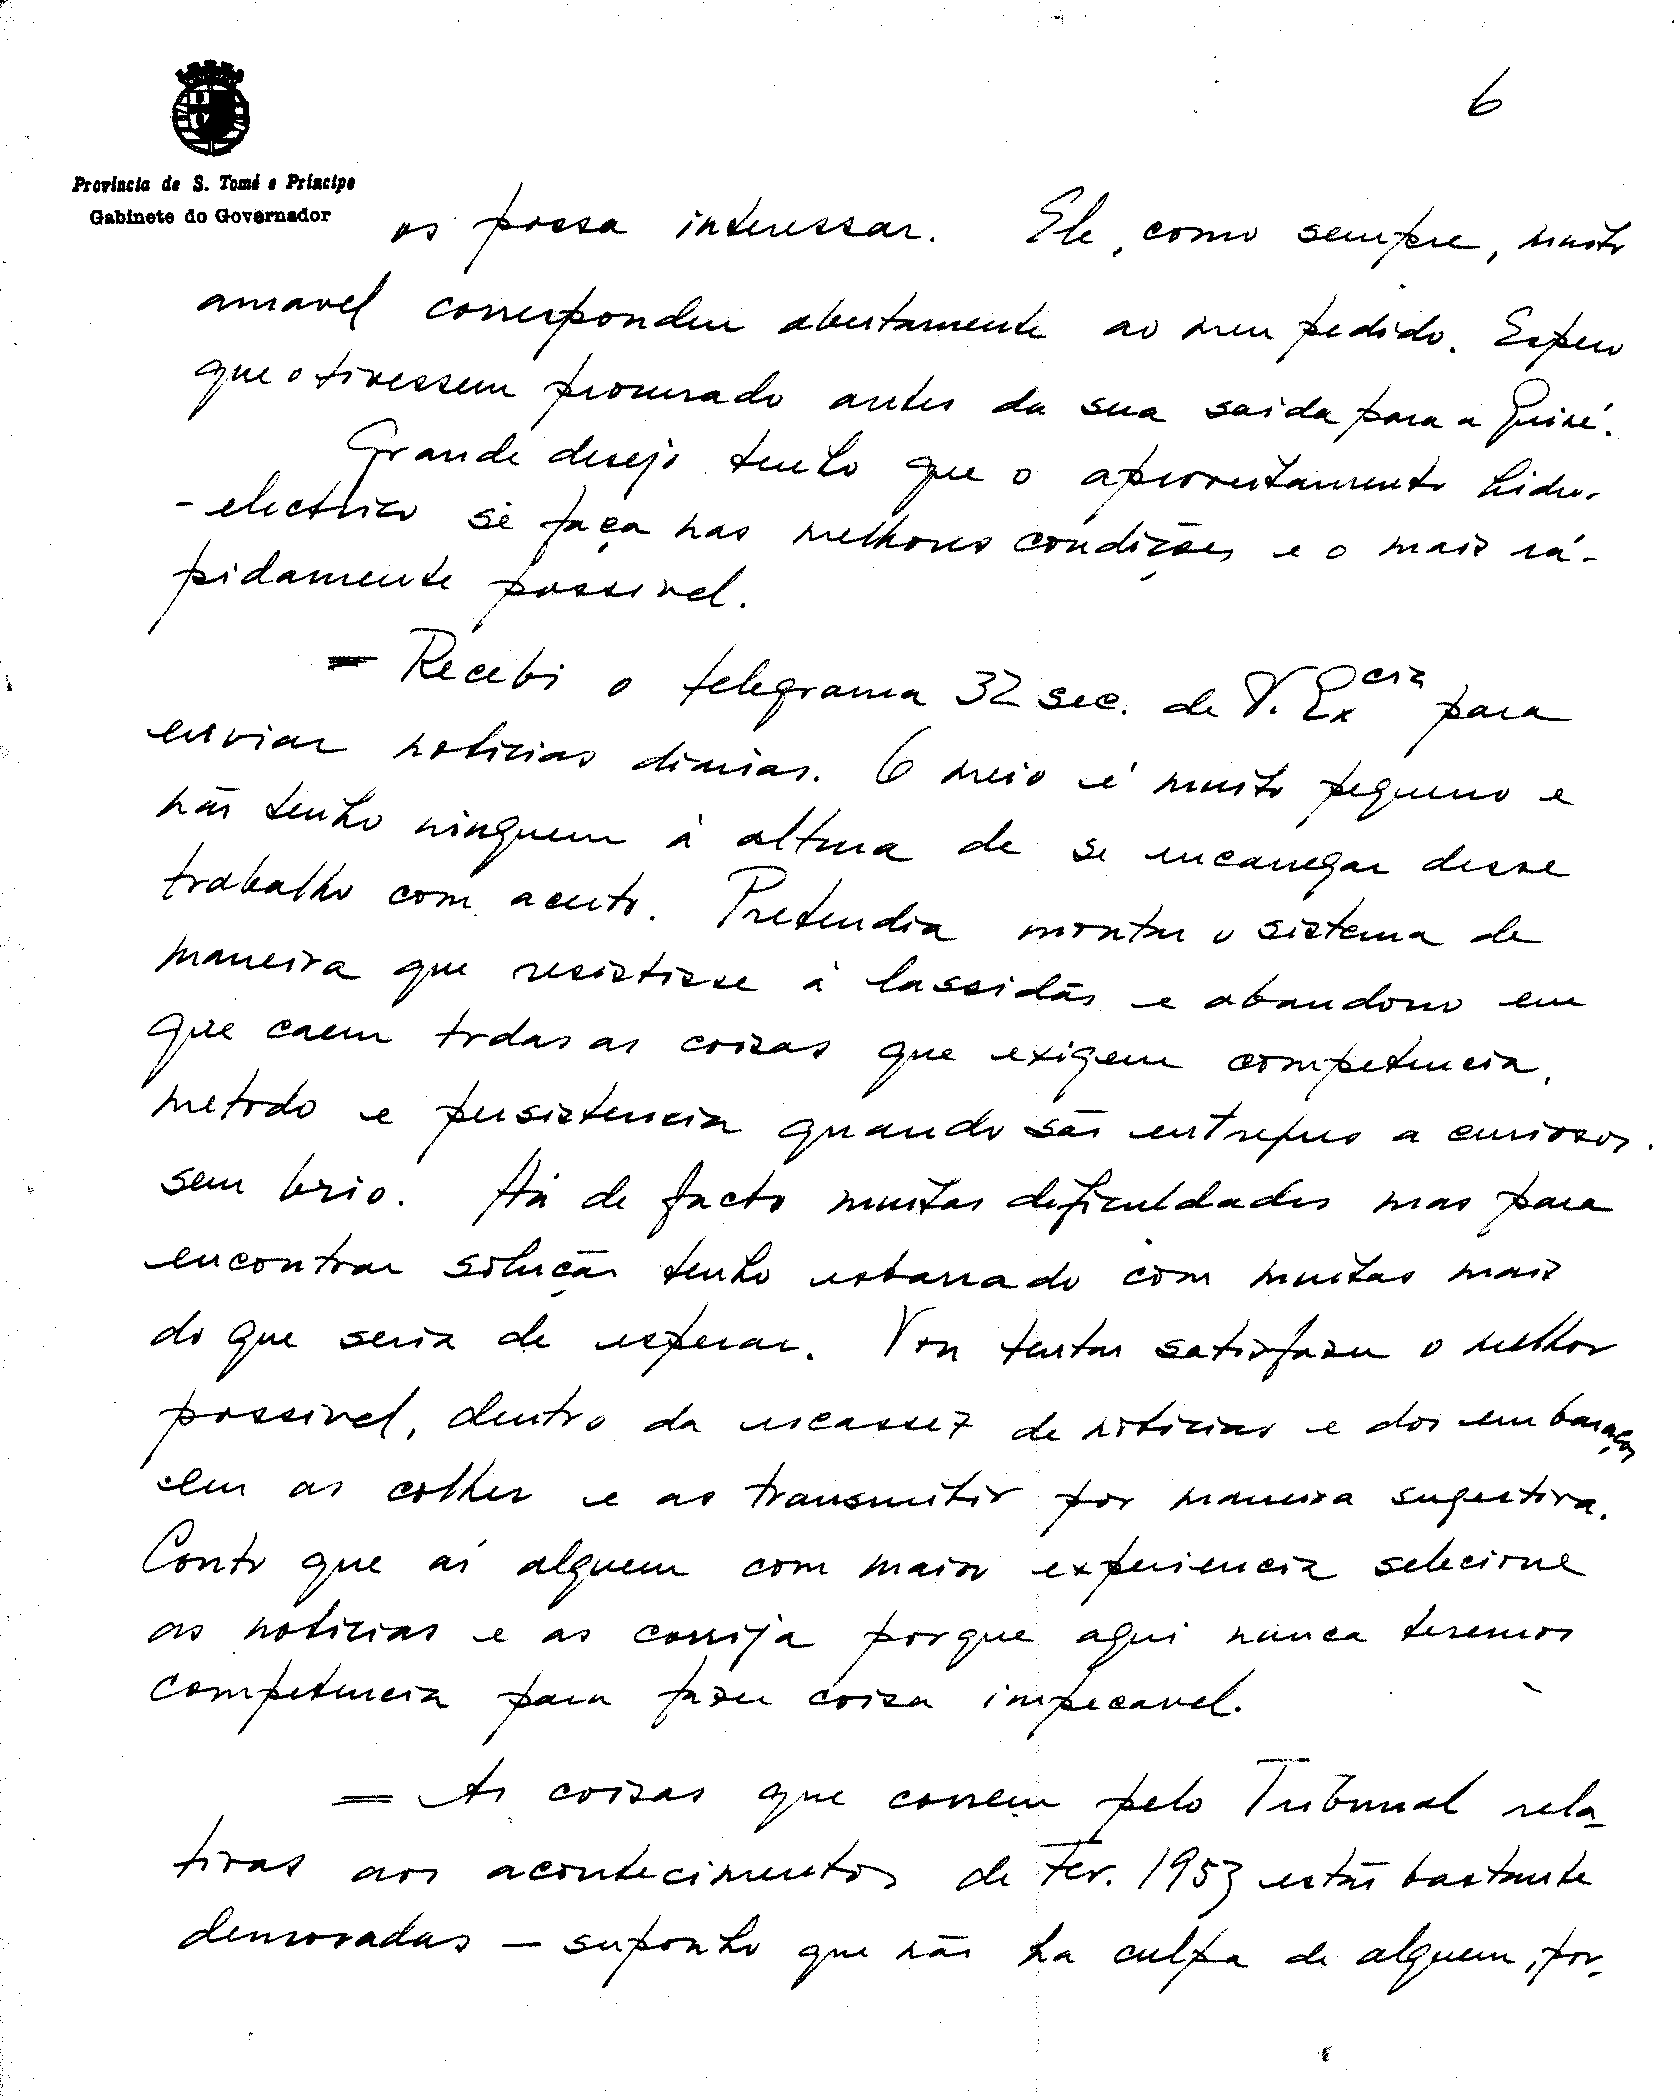 6
Província de S. Tomé e Príncipe
Gabinete do Governador
os possa interessar. Ele, como sempre, muito
amavel correspondeu abertamente ao meu pedido. Espero
que o tivessem procurado antes da sua saida para a Guiné.
Grande desejo tenho que o aproveitamento hidro-
-electrico se faça nas melhores condições e o mais rá-
pidamente possivel.
— Recebi o telegrama 32 sec. de V. Excia para
enviar noticias diarias. O meio é muito pequeno e
não tenho ninguem à altura de se encarregar desse
trabalho com acerto. Pretendia montar o sistema de
maneira que resistisse à lassidão e abandono em
que caem todas as coisas que exigem competencia,
metodo e persistencia quando são entregues a curiosos
sem brio. Há de facto muitas dificuldades mas para
encontrar solução tenho esbarrado com muitas mais
do que seria de esperar. Vou tentar satisfazer o melhor
possivel, dentro da escassez de noticias e dos embaraços
em as colher e as transmitir por maneira sugestiva.
Conto que aí alguem com maior experiencia selecione
as noticias e as corrija porque aqui nunca teremos
competencia para fazer coisa impecavel.
= As coisas que correm pelo Tribunal rela-
tivas aos acontecimentos de Fev. 1953 estão bastante
demoradas — suponho que não ha culpa de alguem, por-